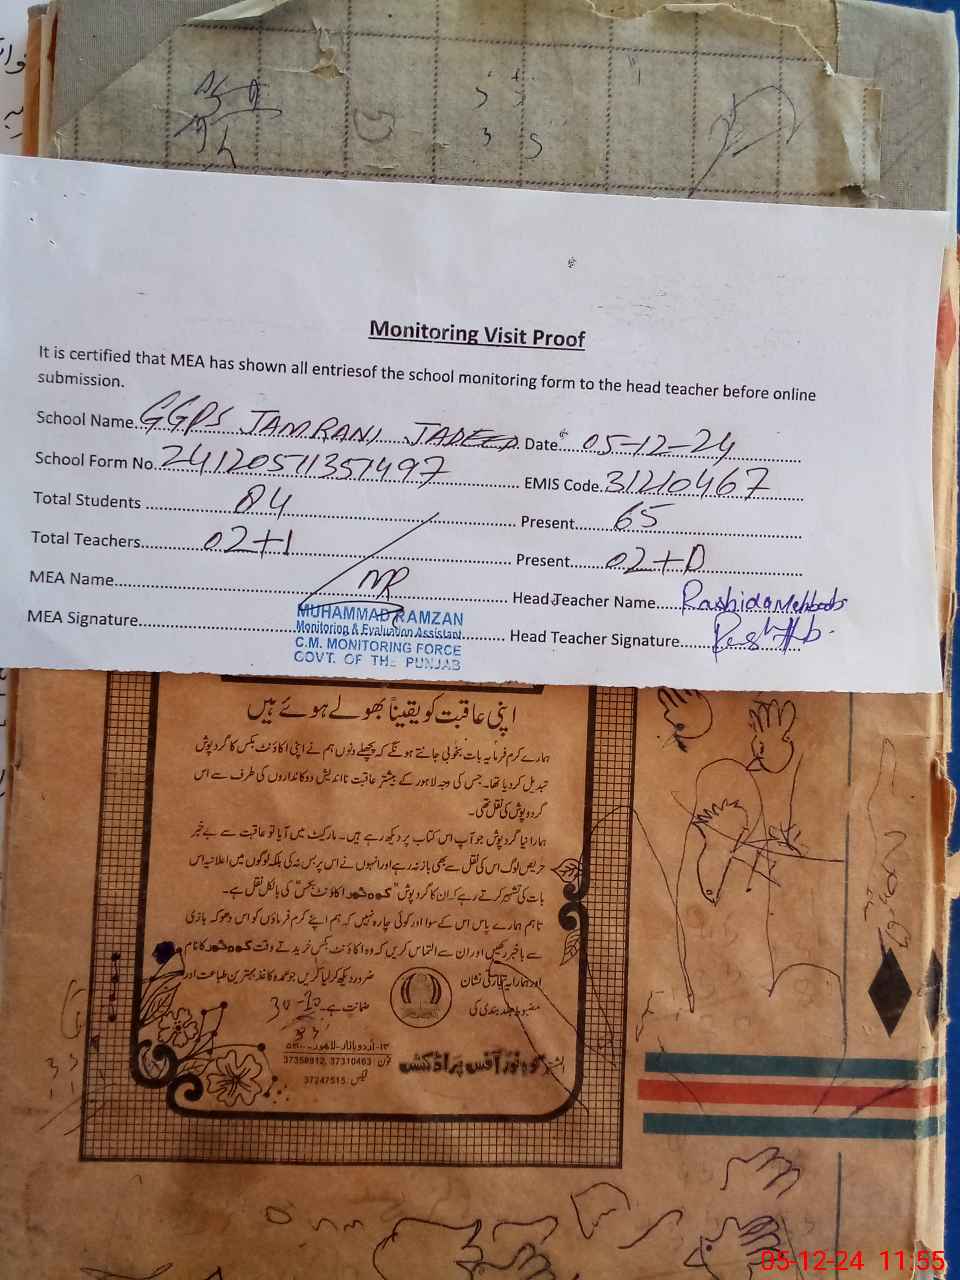 Monitoring Visit Proof
It is certified that MEA has shown all entriesof the school monitoring form to the head teacher before online
submission.
School Name. GGPS JAMRANI JADEED Date 05-12-24
School Form No. 24120511351497 EMIS Code. 31210467
Total Students 84 Present 65
Total Teachers 02+1 Present 02+0
MEA Name Head Teacher Name Rashida Mehboob
MEA Signature Head Teacher Signature
MUHAMMAD RAMZAN
Monitoring & Evaluation Assistant
C.M. MONITORING FORCE
GOVT. OF THE PUNJAB
اپنی عاقبت کو یقیناً بھولے ہوئے ہیں
ہمارے کرم فرما یہ بات بخوبی جانتے ہونگے کہ پچھلے دنوں ہم نے اپنی اکاؤنٹ بکس کا گردپوش
تبدیل کر دیا تھا۔ جس کی وجہ لاہور کے بیشتر عاقبت نااندیش دوکانداروں کی طرف سے اس
گردپوش کی نقل تھی۔
ہمارا نیا گردپوش جو آپ اس کتاب پر دیکھ رہے ہیں۔ مارکیٹ میں آیا تو عاقبت سے بے خبر
حریص لوگ اس کی نقل سے بھی باز نہ رہے اور انہوں نے اس پر بس نہ کی بلکہ لوگوں میں اعلانیہ اس
بات کی تشہیر کرتے رہے کہ ان کا گردپوش "کوہ نور اکاؤنٹ بکس" کی بالکل نقل ہے۔
تاہم ہمارے پاس اس کے سوا اور کوئی چارہ نہیں کہ ہم اپنے کرم فرماؤں کو اس دھوکہ بازی
سے باخبر رکھیں اور ان سے التماس کریں کہ وہ اکاؤنٹ بکس خریدتے وقت کوہ نور کا نام
اور ہمارا تجارتی نشان ضرور دیکھ کر لیا کریں جو عمدہ کاغذ بہترین طباعت اور
مضبوط جلد بندی کی ضمانت ہے۔
30-10
۱۳-اردو بازار-لاہور
فون: 37310463, 37358912
فیکس: 37247515
کوہ نور آفس پراڈکٹس
05-12-24 11:55